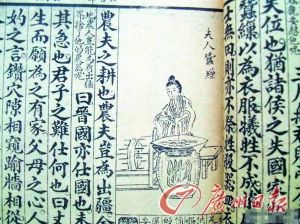 失位也猶諸侯之失
蠶繅以為衣服犧牲不成
士無田則亦不祭牲殺器
夫人蠶繅
農夫之耕也農夫豈為出疆
曰晉國亦仕國也
其急也君子之難仕何也曰
生而願為之有家父母之心
妁之言鑽穴隙相窺踰牆相
廣州日報